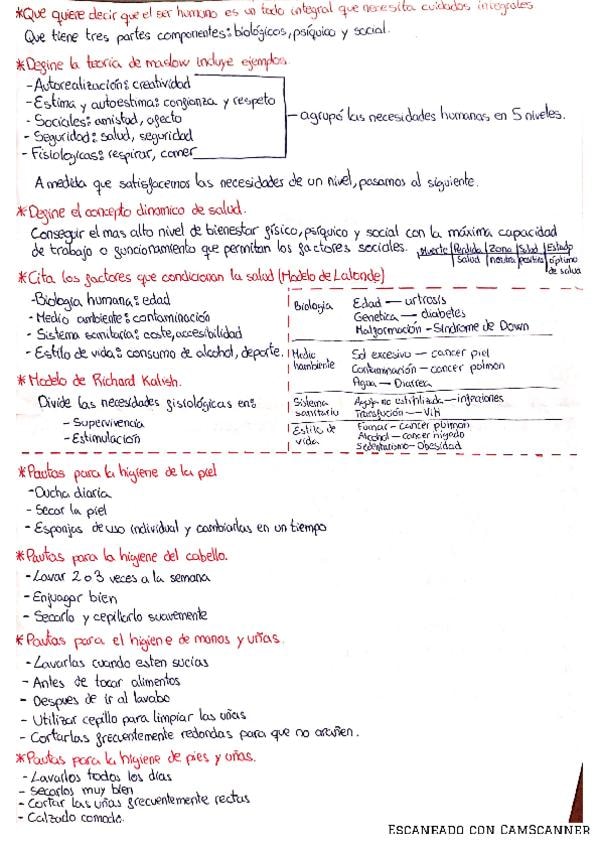 *Que quiere decir que el ser humano es un todo integral que necesita cuidados integrales
Que tiene tres partes componentes: biológicos, psíquico y social.
*Define la teoría de maslow incluye ejemplos.
-Autorealización: creatividad
-Estima y autoestima: confianza y respeto
-Sociales: amistad, afecto
-Seguridad: salud, seguridad
-Fisiologicas: respirar, comer
-agrupó las necesidades humanas en 5 niveles.
A medida que satisfacemos las necesidades de un nivel, pasamos al siguiente.
*Define el concepto dinamico de salud.
Conseguir el mas alto nivel de bienestar físico, psíquico y social con la máxima capacidad
de trabajo o funcionamiento que permitan los factores sociales.
Muerte | Perdida salud | Zona neutra | Salud positiva | Estado óptimo de salud
*Cita los factores que condicionan la salud (Modelo de Lalonde)
-Biologia humana: edad
-Medio ambiente: contaminación
-Sistema sanitaria: coste, accesibilidad
-Estilo de vida: consumo de alcohol, deporte.
Biologia
Edad — urtrosis
Genetica — diabetes
Malformación - Sindrome de Down
Medio hambiente
Sol excesivo — cancer piel
Contaminación — cancer pulmon
Agua — Diarrea
Sistema sanitario
Aguja no esterilizada — infecciones
Transfución — VIH
Estilo de vida
Fumar — cancer pulmon
Alcohol — cancer higado
Sedentarismo — Obesidad
*Modelo de Richard Kalish.
Divide las necesidades fisiológicas en:
- Supervivencia
- Estimulación
*Pautas para la higiene de la piel
-Ducha diaria
- Secar la piel
- Esponjas de uso individual y cambiarlas en un tiempo
*Pautas para la higiene del cabello.
-Lavar 2 o 3 veces a la semana
-Enjuagar bien
- Secarlo y cepillarlo suavemente
*Pautas para el higiene de manos y uñas.
-Lavarlas cuando esten sucias
- Antes de tocar alimentos
- Despues de ir al lavabo
- Utilizar cepillo para limpiar las uñas
- Cortarlas frecuentemente redondas para que no arañen.
*Pautas para la higiene de pies y uñas.
- Lavarlos todos los días
- Secarlos muy bien
- Cortar las uñas frecuentemente rectas
- Calzado comodo.
ESCANEADO CON CAMSCANNER